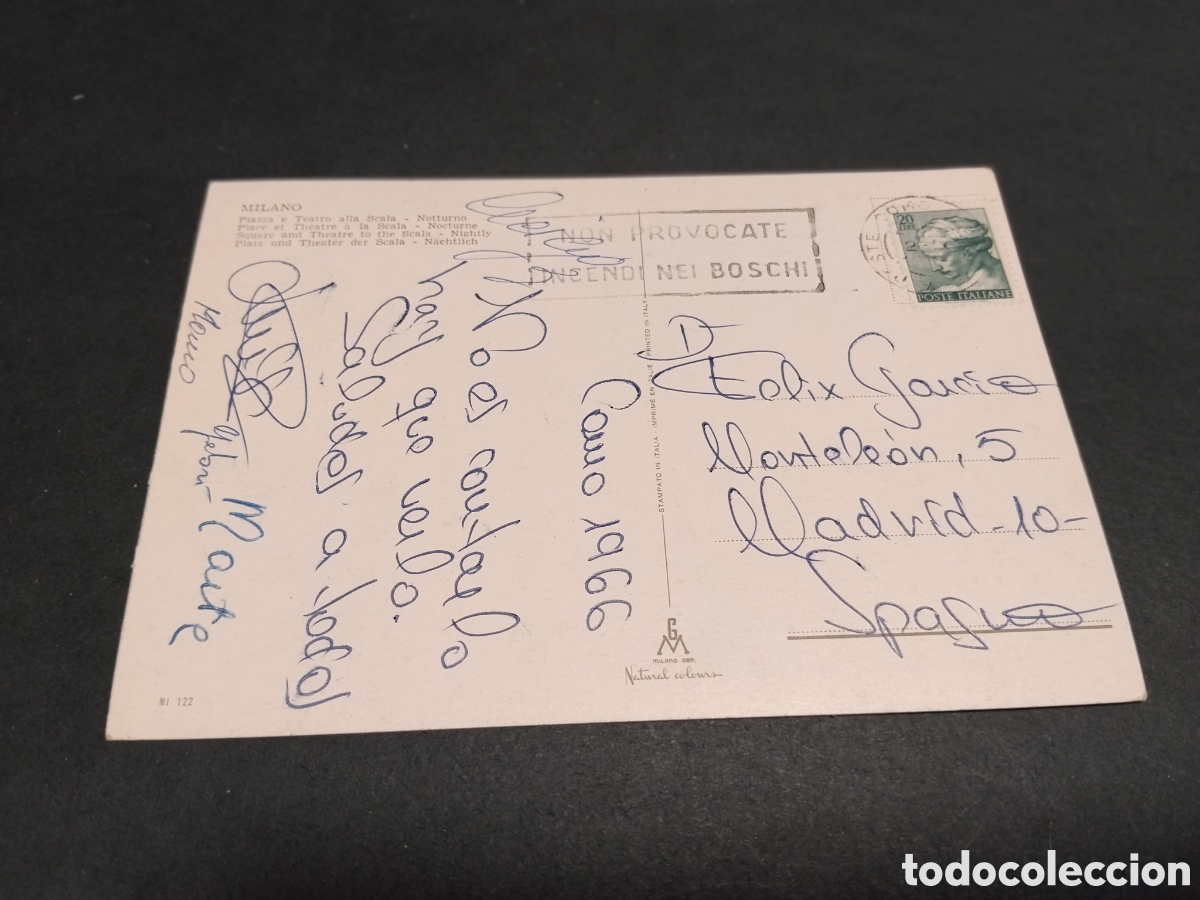 MILANO
Piazza e Teatro alla Scala - Notturno
Place et Théatre à la Scala - Nocturne
Square and Theatre to the Scala - Nightly
Platz und Theater der Scala - Nächtlich
NON PROVOCATE
INCENDI NEI BOSCHI
20
LIRE
POSTE ITALIANE
Como 1966
No es contarlo
hay que verlo.
Saludos a todos
Maite
D.
Felix Garcia
Monteleón, 5
Madrid -10-
Spagna
STAMPATO IN ITALIA - IMPRIMÉ EN ITALIE - PRINTED IN ITALY
GM
MILANO DEP.
Natural colours
MI 122
todocoleccion